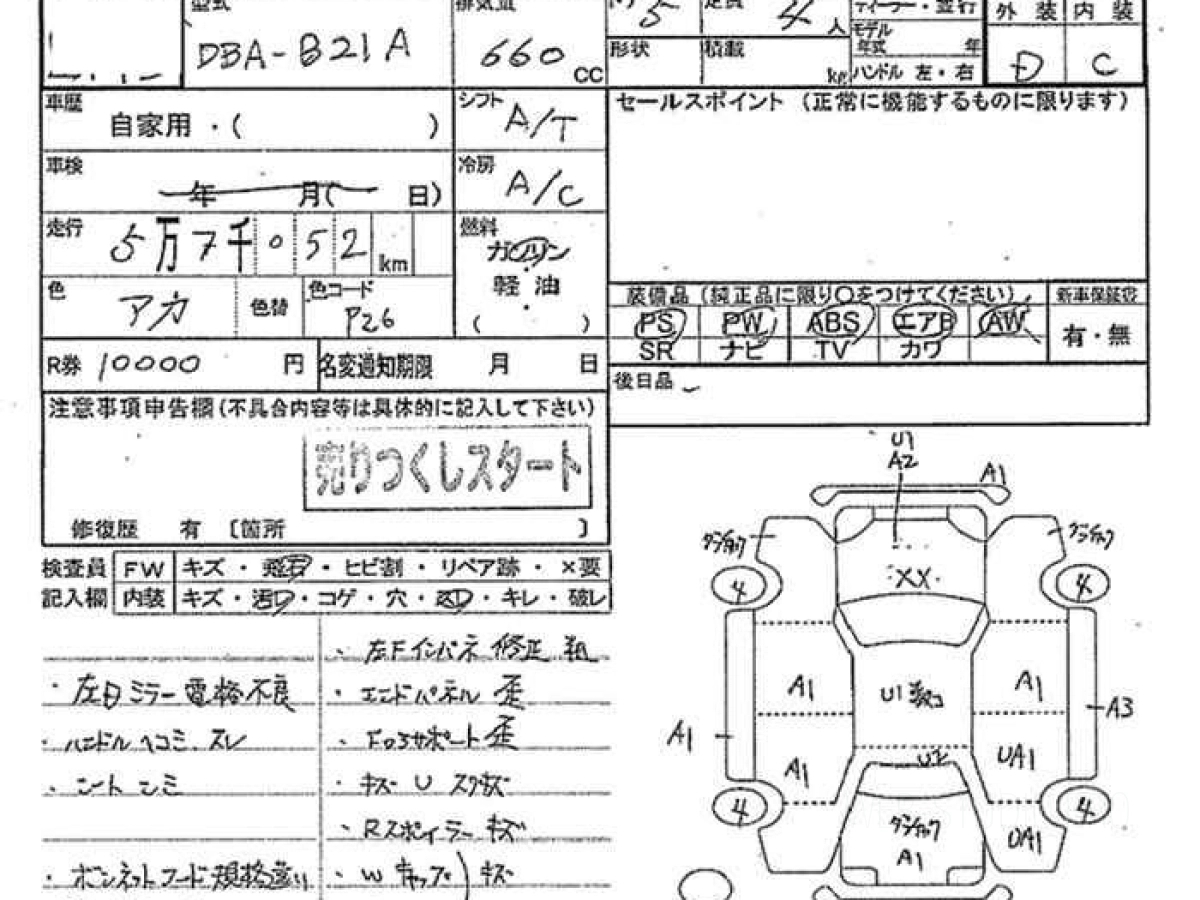 型式
排気量
DBA-B21A
660
CC
5
定員
4
人
ディーラー・並行
モデル年式 年
外装 内装
形状
積載
kg
ハンドル 左・右
D
C
車歴
自家用・( )
シフト
A/T
セールスポイント (正常に機能するものに限ります)
車検
年 月( 日)
冷房
A/C
走行
5万7千052
km
燃料
ガソリン
軽油
( )
色
アカ
色替
色コード
P26
装備品 (純正品に限り○をつけてください)
新車保証書
PS PW ABS エアB AW
SR ナビ TV カワ
有・無
R券 10000 円
名変通知期限 月 日
後日品
注意事項申告欄(不具合内容等は具体的に記入して下さい)
売りつくしスタート
修復歴 有 〔箇所 〕
検査員
記入欄
FW キズ・飛石・ヒビ割・リペア跡・×要
内装 キズ・汚れ・コゲ・穴・・キレ・破レ
・左日ミラー電格不良
・ハンドルヘコミ、スレ
・シートシミ
・ボンネットフード規格違い
・左Fインパネ修正
・エンドパネル歪
・Fロアサポート歪
・キズ U スリキズ
・Rスポイラーキズ
・Wキャップ) キズ
U1
A2
A1
XX
4
4
A1
U1
A1
A1
A3
A1
UA1
4
4
A1
UA1